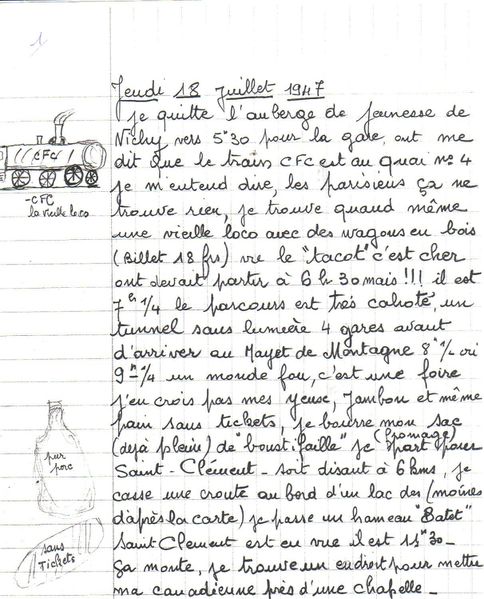 1
Jeudi 18 Juillet 1947
je quitte l'auberge de jeunesse de
Vichy vers 5h30 pour la gare, ont me
dit que le train CFC est au quai no 4
je m'entend dire, les parisiens ça ne
trouve rien, je trouve quand même
une vieille loco avec des wagons en bois
(Billet 18 frs) vve le "tacot" c'est cher
ont devait partir à 6h30 mais !!! il est
7h 1/4 le parcours est très cahoté, un
tunnel sans lumière 4 gares avant
d'arriver au Mayet de Montagne 8h 1/2 ici
9h 1/4 un monde fou, c'est une foire
j'en crois pas mes yeux, Jambon et même
pain sans tickets, je bourre mon sac
(dejà plein) de "boustifaille" (fromage) je part pour
Saint-Clément - soit disant à 6 kms, je
casse une croute au bord d'un lac des (moines
d'après la carte) je passe un hameau "Batet"
Saint Clement est en vue il est 11h30 -
ça monte, je trouve un endroit pour mettre
ma canadienne près d'une chapelle -
CFC
- CFC
la vieille loco
pur
porc
sans
Tickets